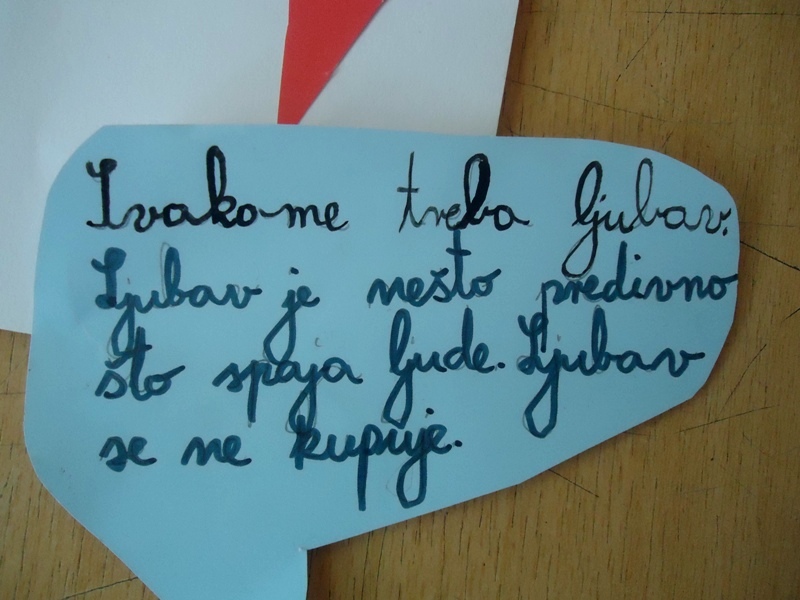 Svakome treba ljubav.
Ljubav je nešto predivno
što spaja ljude. Ljubav
se ne kupuje.